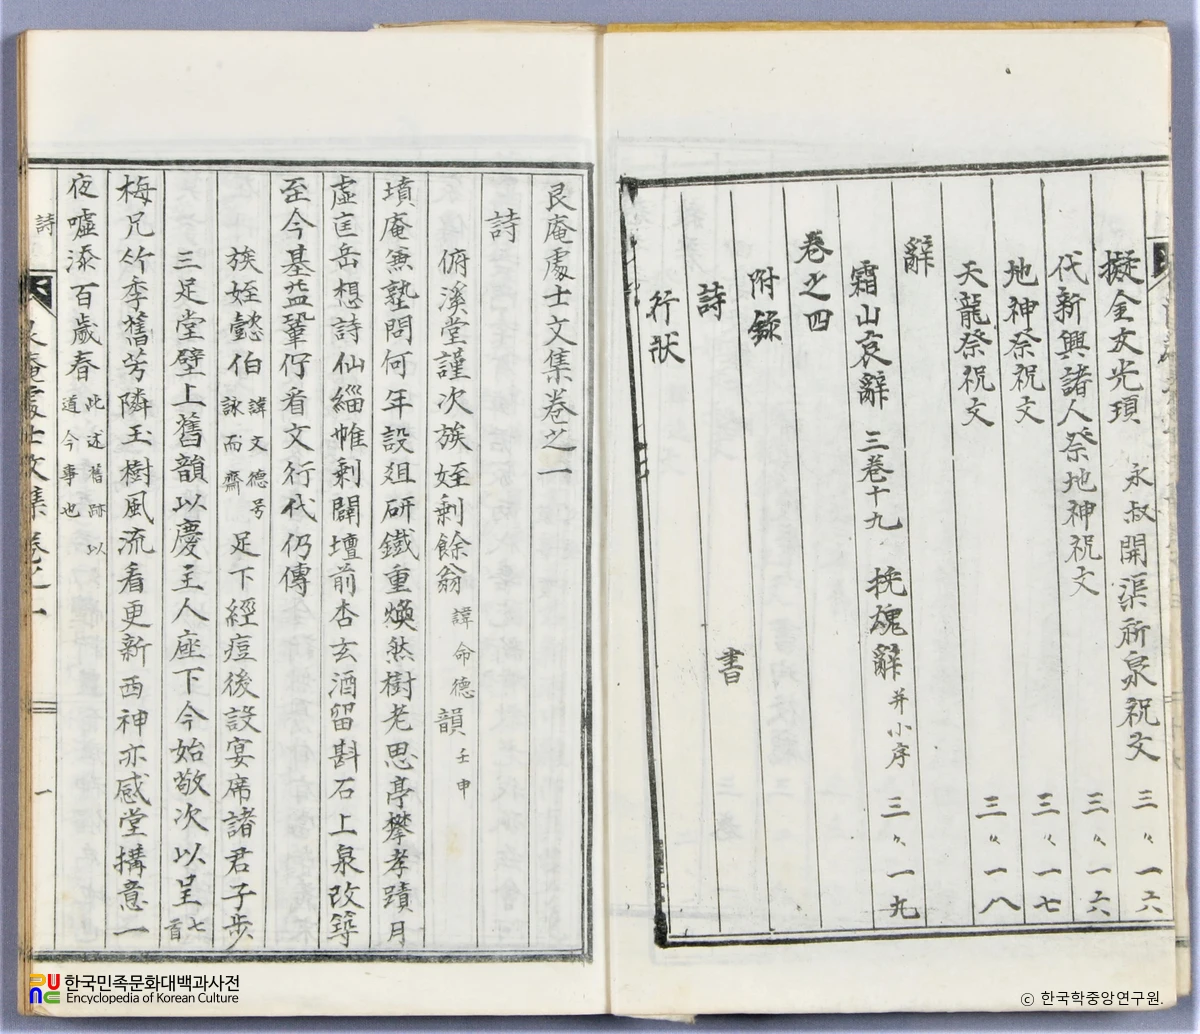 擬金文光項 永叔開渠祈泉祝文 三〃一六
代新興諸人祭地神祝文 三〃一六
地神祭祝文 三〃一七
天龍祭祝文 三〃一八
辭
霜山哀辭 三卷十九 挽魂辭 并小序 三〃一九
卷之四
附錄
詩 書
行狀
艮庵處士文集卷之一
詩
俯溪堂謹次族姪剩餘翁 諱命德 韻 壬申
墳庵兼塾問何年設爼研鐵重煥然樹老思亭攀孝蹟月
虛匡岳想詩仙緇帷剩闢壇前杏玄酒留斟石上泉改築
至今基益鞏佇看文行代仍傳
族姪懿伯 諱文德号詠而齋 足下經痘後設宴席諸君子步
三足堂壁上舊韻以慶主人座下今始敬次以呈 七首
梅兄竹季舊芳隣玉樹風流看更新酉神亦感堂搆意一
夜噓添百歲春 此述舊跡以道今事也
詩 艮庵處士文集 卷之一 一
한국민족문화대백과사전
Encyclopedia of Korean Culture
ⓒ 한국학중앙연구원.